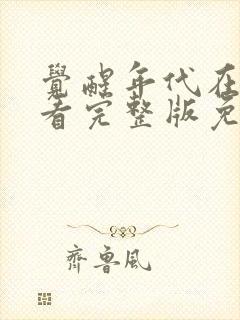 覺醒年代在
看完整版免
齊魯風